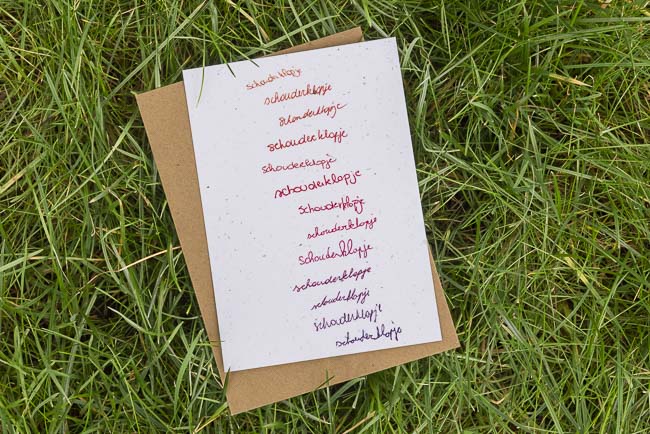 schouderklopje
schouderklopje
schouderklopje
schouderklopje
schouderklopje
schouderklopje
schouderklopje
schouderklopje
schouderklopje
schouderklopje
schouderklopje
schouderklopje
schouderklopje